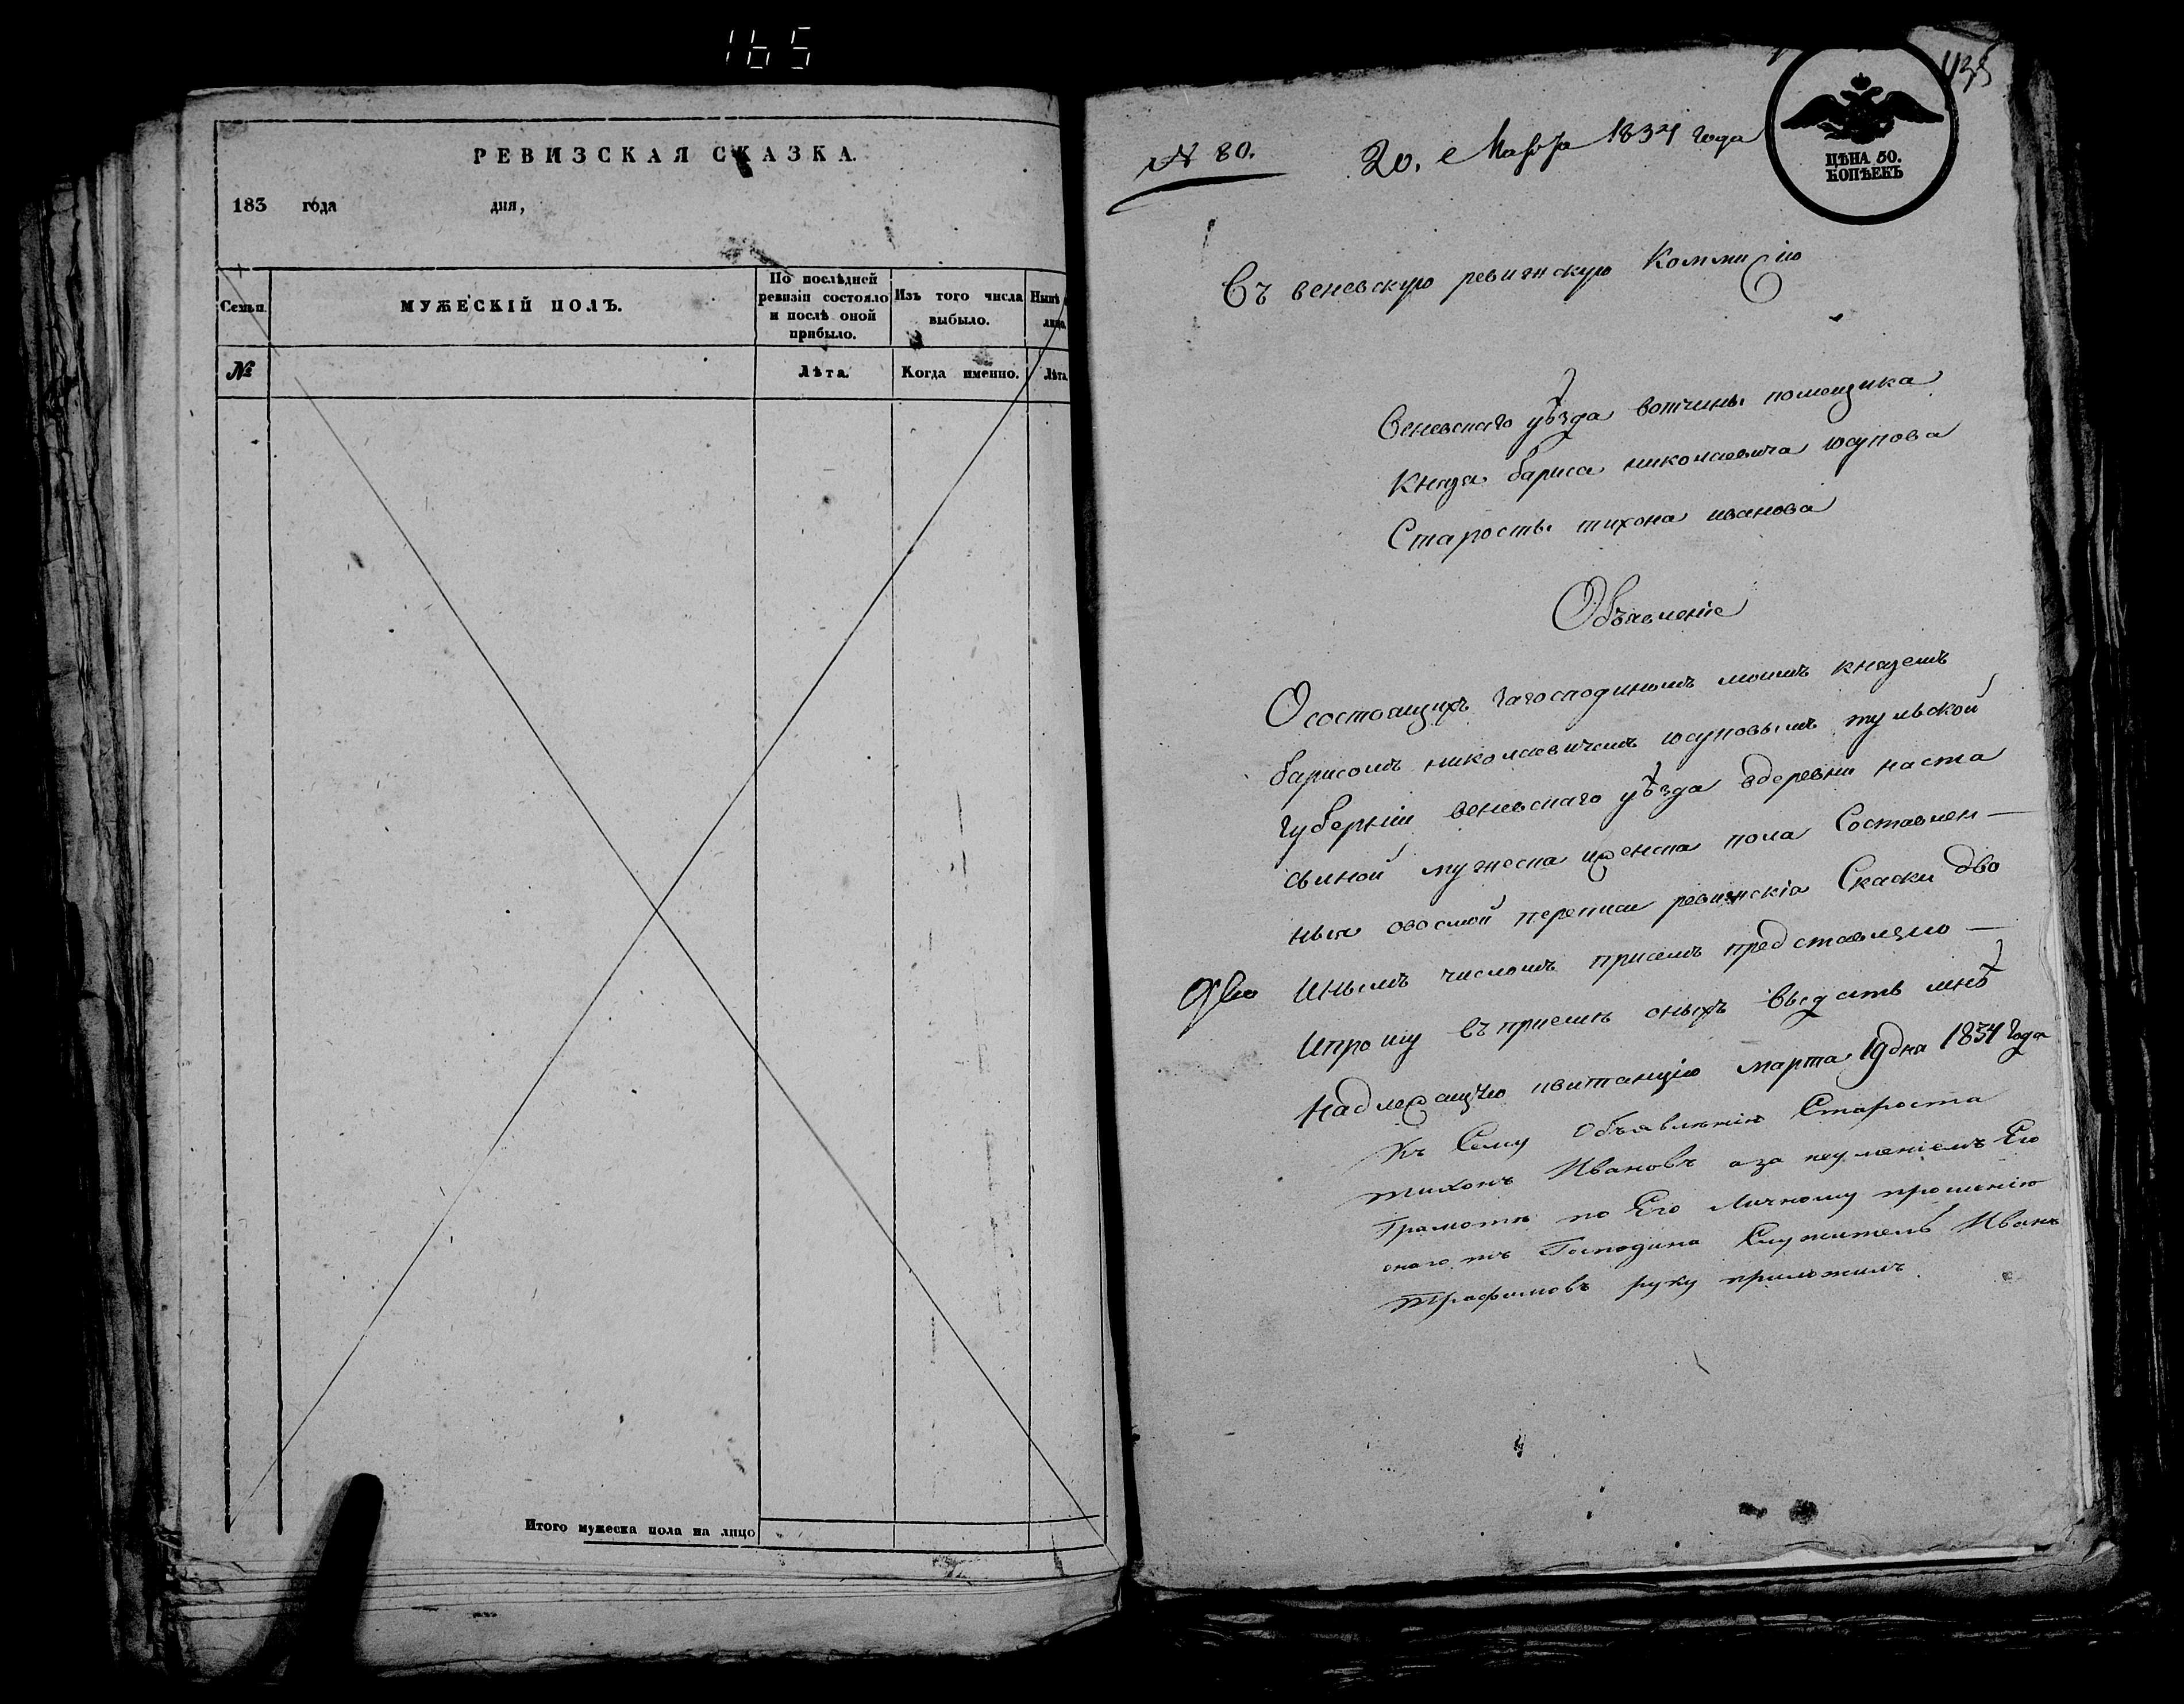 165
РЕВИЗСКАЯ СКАЗКА.
183 года дня,
Семьи.
МУЖЕСКІЙ ПОЛЪ.
По послѣдней ревизіи состояло и послѣ оной прибыло.
Изъ того числа выбыло.
Нынѣ лицо
№
Лѣта.
Когда именно.
Лѣта
Итого мужеска пола на лицо
№ 80.
20. Марта 1834 года
ЦѢНА 50.
КОПѢЕКЪ
Въ веневскую ревижскую Коммисію
Веневскаго уѣзда вотчины помещика
Князя бариса николаевича юсупова
Старосты тихона иванова
Объявленіе
О состоящихъ загосподиномъ моимъ княземъ
барисомъ николаевичемъ юсуповымъ тульской
губерніи веневскаго уѣзда вдеревни наста
сьиной мужеска иженска пола Составлен—
ныя овосмой переписи ревижскія Скаски дво
инымъ числомъ присемъ представляю—
Ипрошу въприеми оныхъ выдать мнѣ
надлежащую квитанцію марта 19 дня 1834 года
Къ Сему Объявлѣнію Староста
тихонъ Ивановъ аза неуменіемъ Его
Грамоти по Его Личному прошенію
онагожъ Господина Служитель Иванъ
трафимовъ руку приложилъ